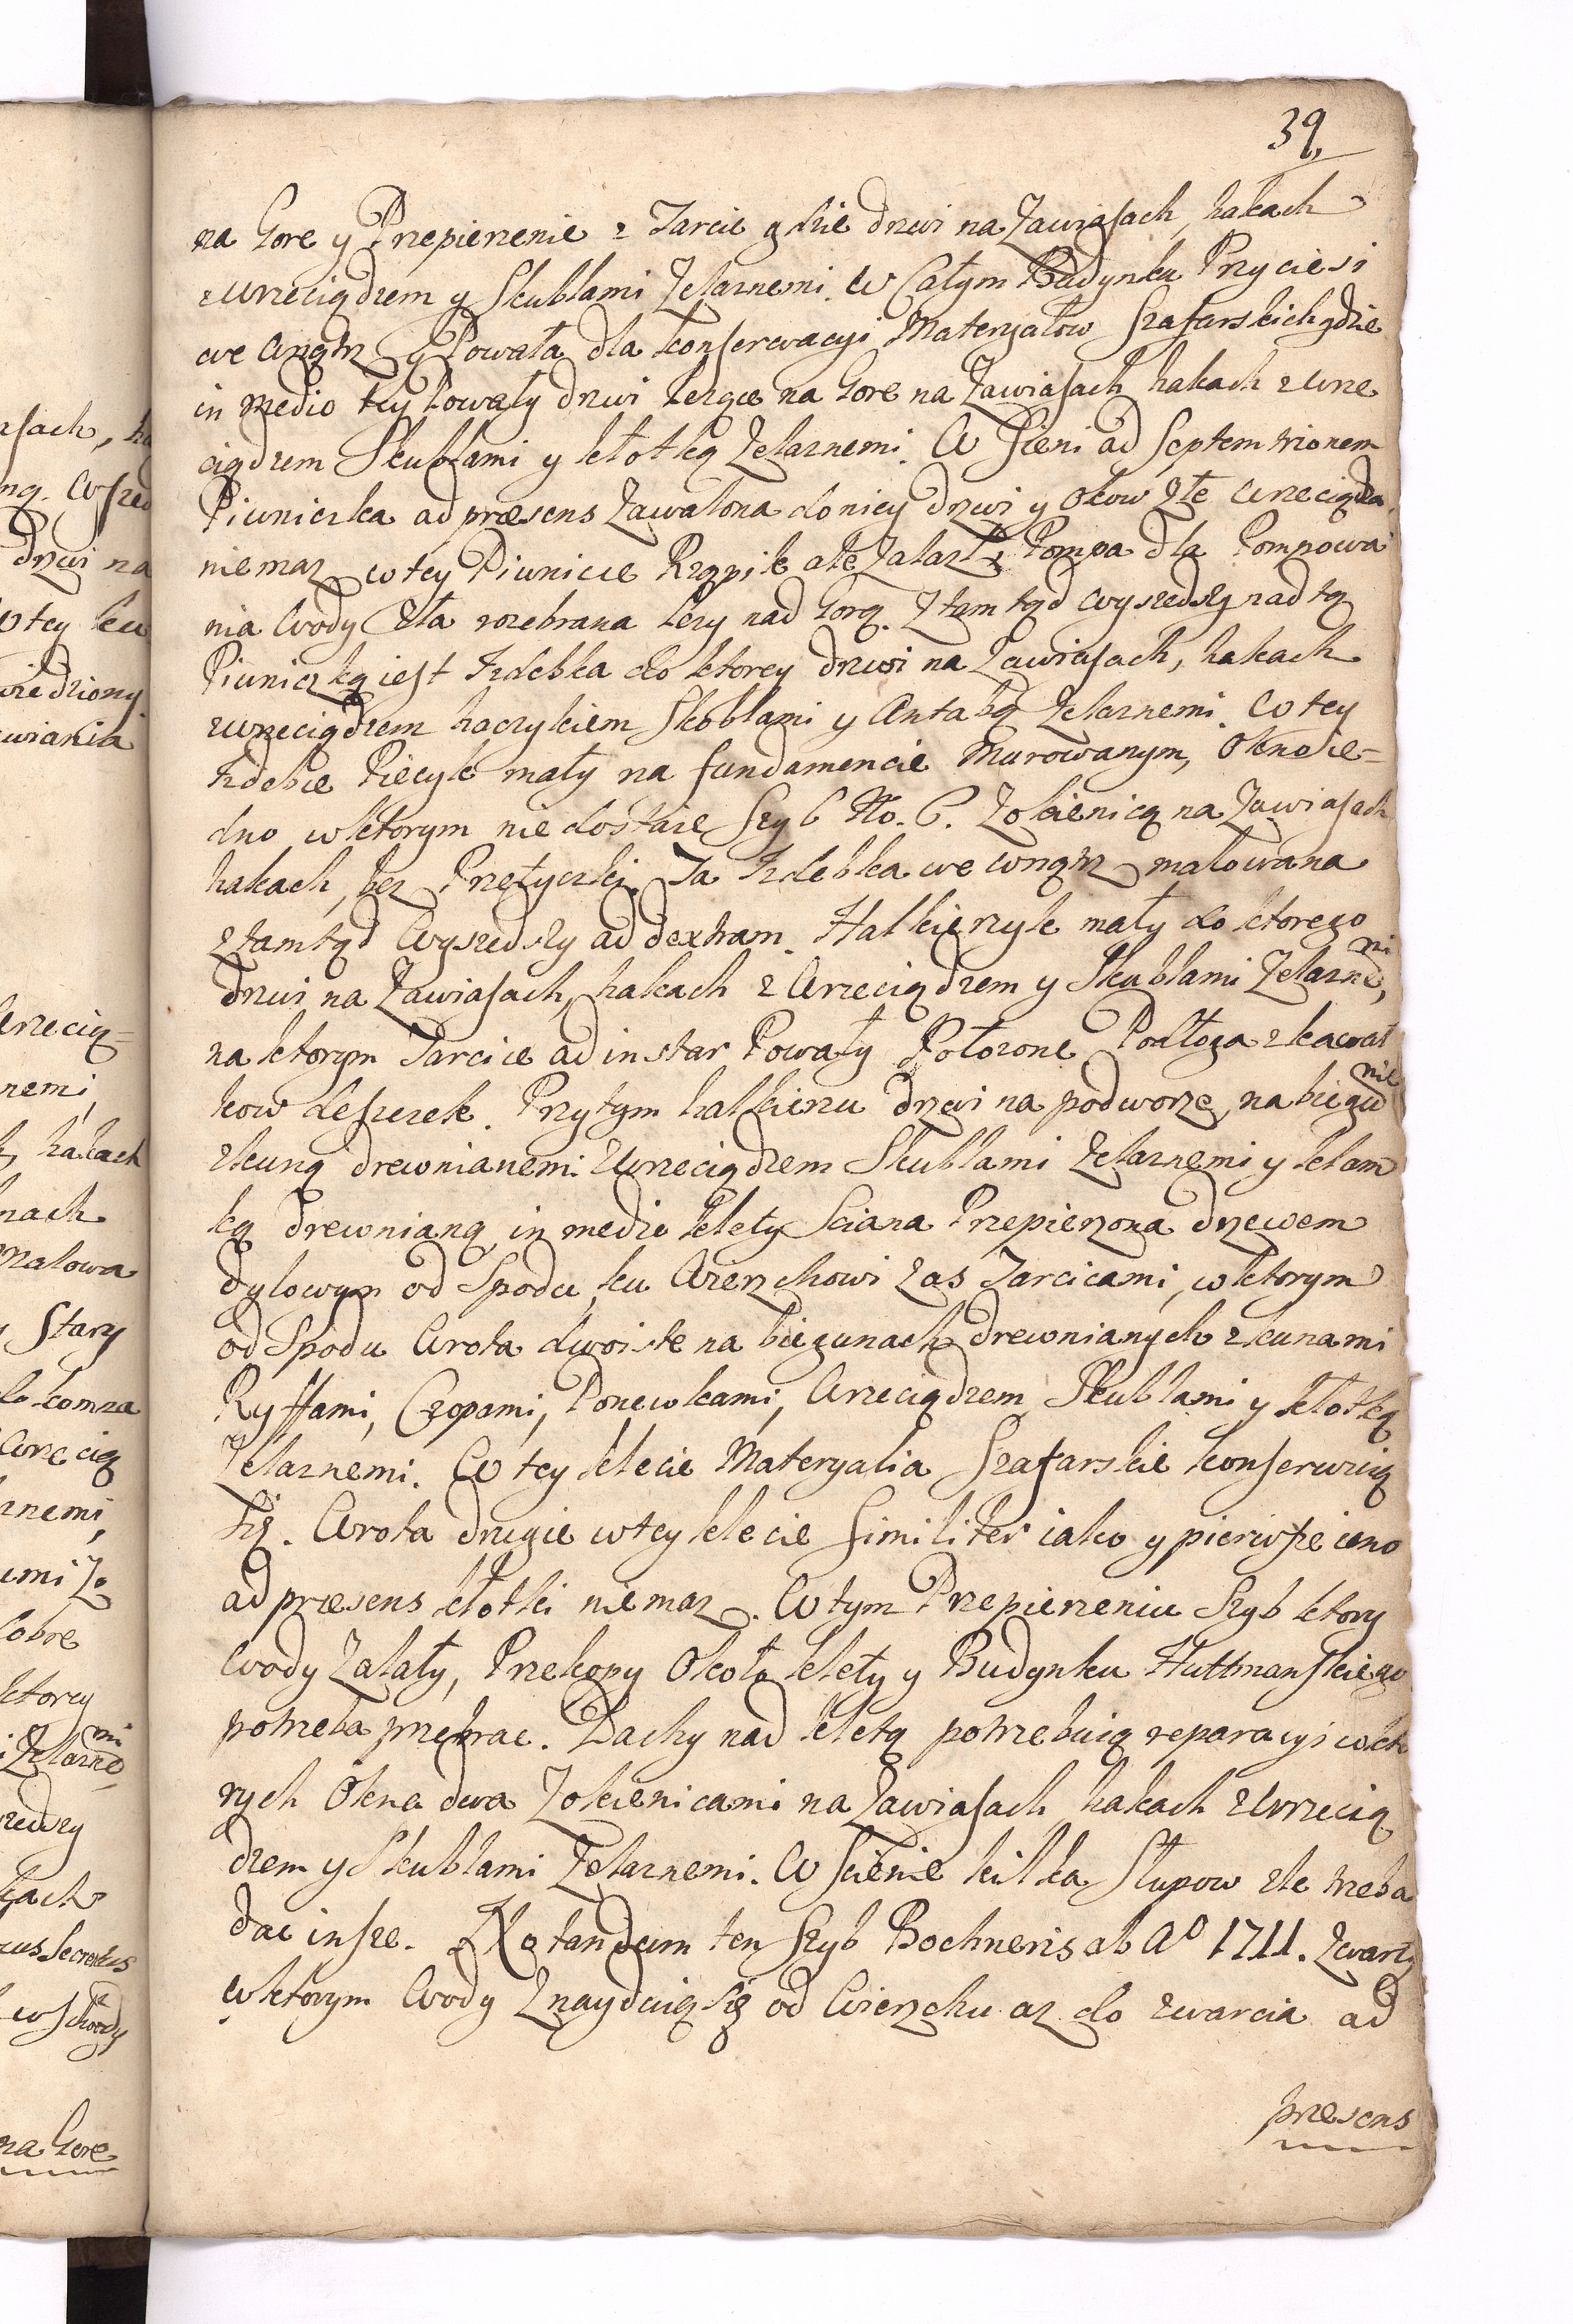 39.
na Gore y Przepierzenie z Tarcic gdzie drzwi na Zawiasach, hakach
zwrzeciądzem y Skublami Zelaznemi. W Całym Budynku Przyciesi
we wnątrz y Powała dla konserwacyi Materyałow Szafarskich gdzie
in medio tey Powały drzwi lezące na Gore na Zawiasach hakach zwrze
ciądzem Skublami y kłotką Zelaznemi. W Sieni ad Septemtrionem
Piwniczka ad præsens Zawalona do niey drzwi y Okow Złe wrzeciądza
niemasz w tey Piwnicce Rząpik ale Zalazł, Pompa dla Pompowa
nia Wody Zła rozebrana lezy nad Gorą. Ztamtąd wyszedszy nad tą
Piwniczką iest Izdebka do ktorey drzwi na Zawiasach, hakach
zwrzeciądzem haczykiem Skoblami y Antabą Zelaznemi. W tey
Izdebce Piecyk mały na fundamencie Murowanym, Okno ie=
dno wktorym nie dostaie Szyb No. 6. Zokienicą na Zawiasach
hakach, bez Przetyczki. Ta Izdebka we wnątrz malowana
ztamtąd Wyszedszy ad dextram. Halkierzyk mały do ktorego
drzwi na Zawiasach, hakach z Wrzeciądzem y Skublami Zelaznemi,
na ktorym Tarcice ad instar Powały Połozone Podłoga zkawał
kow deszczek. Przytym halkierzu drzwi na podworze, na biegunie
zkuną drewnianemi zwrzeciądzem Skublami Zelaznemi y klam
ką drewnianą, in medio klety Sciana Przepierzona drzewem
dylowym od Spodu, ku Wierzchowi zas Tarcicami, wktorym
od Spodu Wrota dwoiste na biegunach drewnianych zkunami
Ryffami, Czopami, Panewkami, Wrzeciądzem Skublami y kłotką
Zelaznemi. W tey klecie Materyalia Szafarskie konserwuią
się. Wrota drugie wtey klecie similiter iako y pierwsze ieno
ad præsens kłotki niemasz. W tym Przepierzeniu Szyb ktory
Wody Zalały, Przekopy Około klety y Budynku Huttmanskiego
potrzeba przebrac. Dachy nad kletą potrzebuią reparacyi wkto
rych Okna dwa Zokienicami na Zawiasach hakach zwrzecią
dzem y Skublami Zelaznemi. W Scienie kilka Słupow złe trzeba
dac insze. Notandum ten Szyb Bochneris ab Aº 1711. Zwarty
wktorym Wody Znayduią się od Wierzchu az do zwarcia ad
præsens